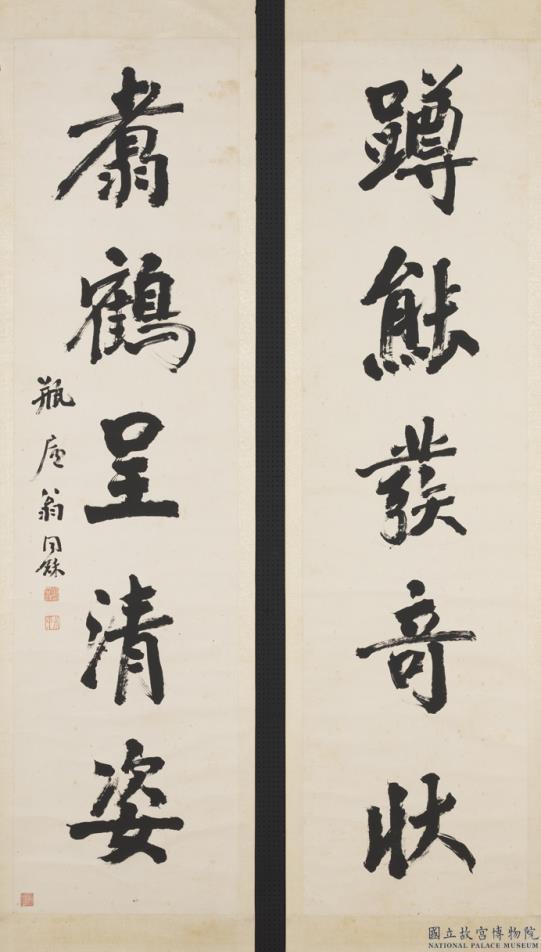 蹲熊發奇狀
翥鶴呈清姿
瓶廬翁同龢
國立故宮博物院
NATIONAL PALACE MUSEUM